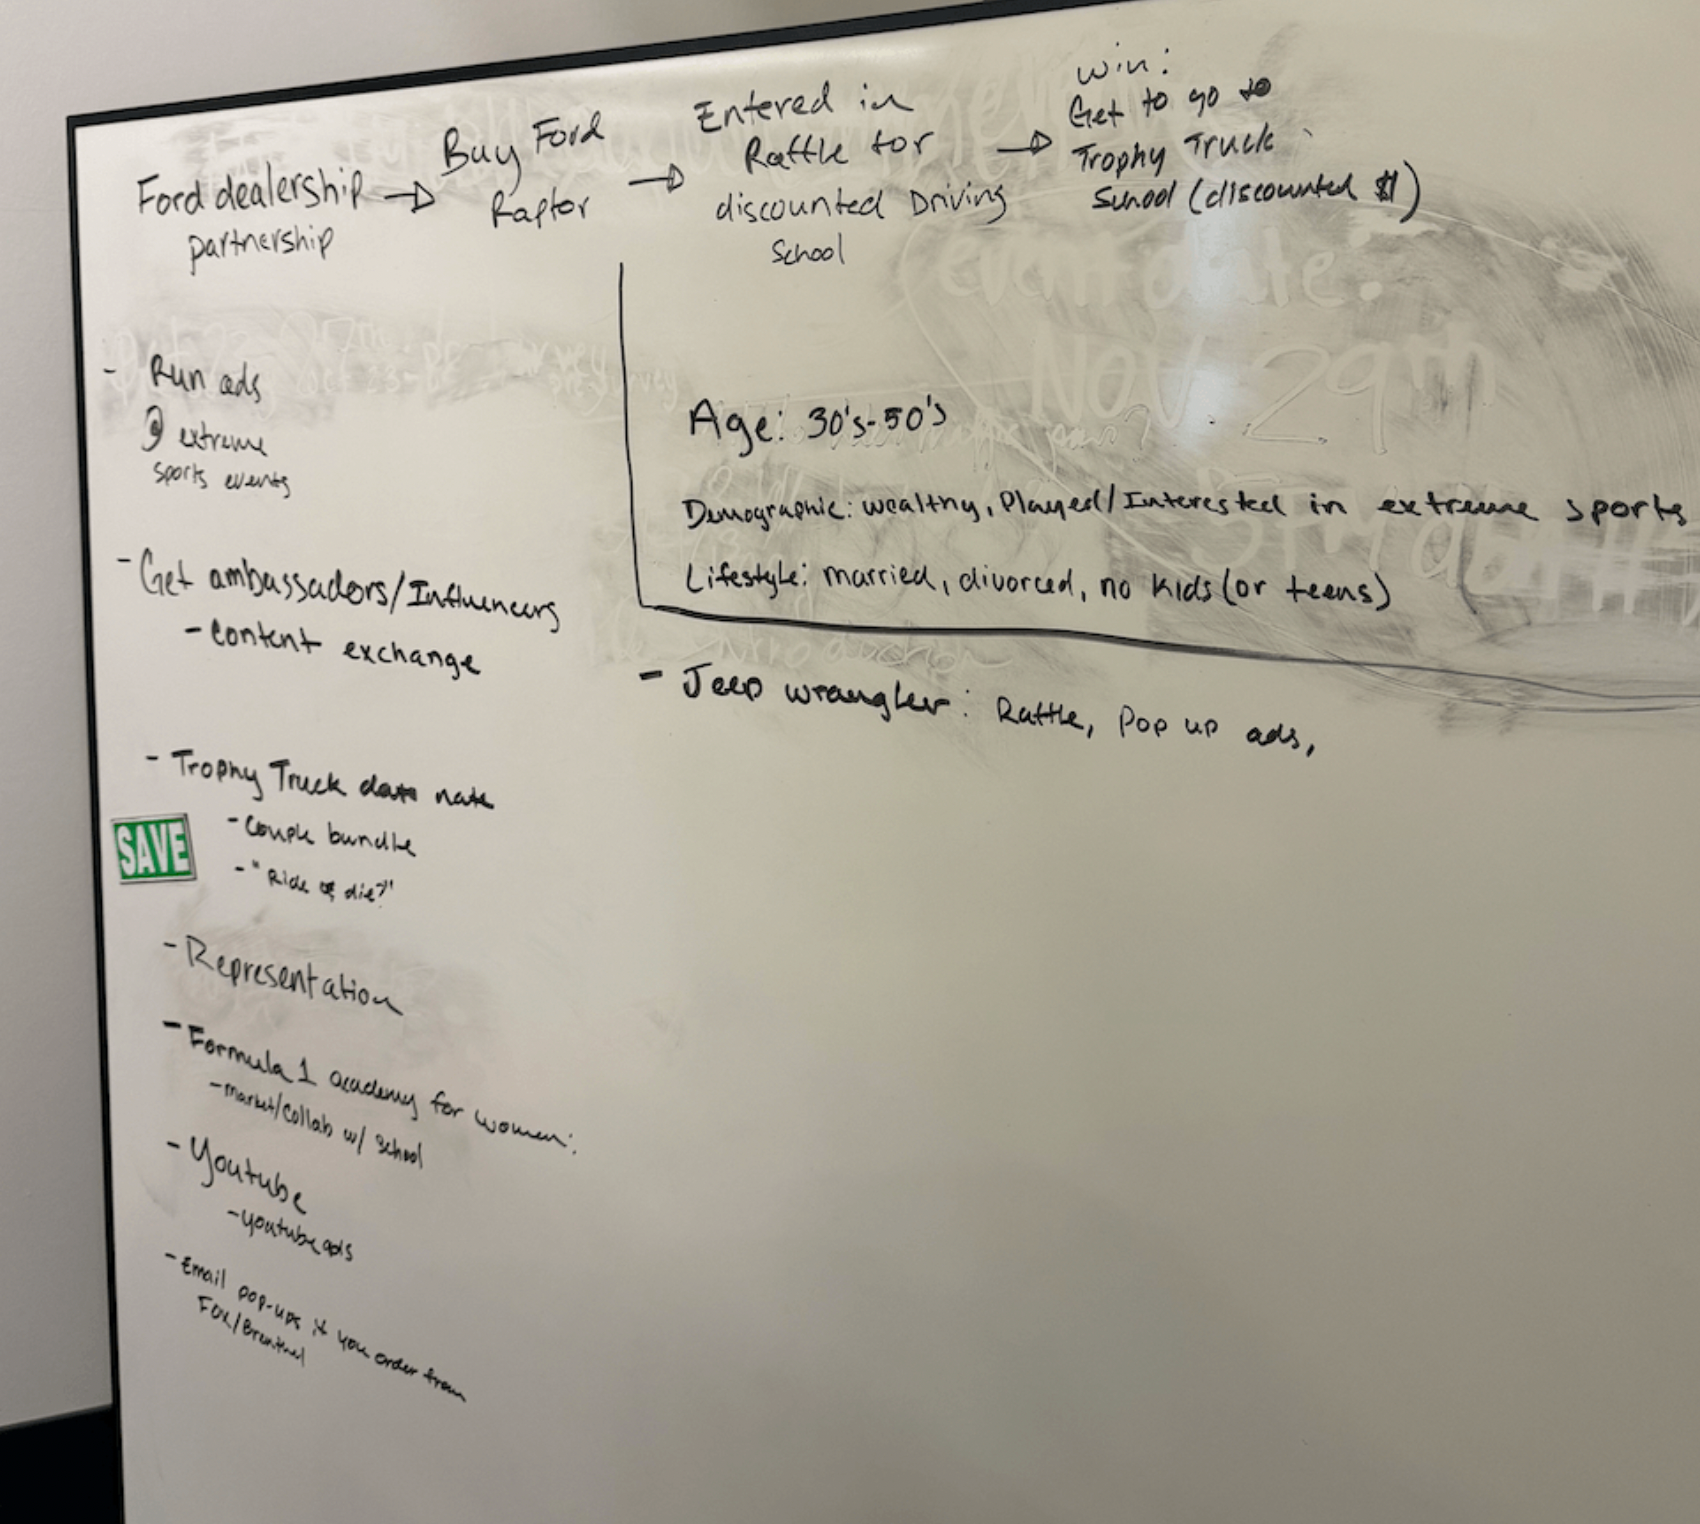 Ford dealership
partnership
→ Buy Ford
Raptor
→ Entered in
Raffle for
discounted Driving
School
→ win:
Get to go to
Trophy Truck
School (discounted $)
- Run ads
@ extreme
sports events
- Get ambassadors/Influencers
- content exchange
- Trophy Truck date nate
- Couple bundle
- "Ride or die?"
SAVE
- Representation
- Formula 1 academy for women:
- market/collab w/ school
- Youtube
- youtube ads
- Email pop-ups if you order from
Fox/Brenthel
Age: 30's-50's
Demographic: wealthy, Played/Interested in extreme sports
Lifestyle: married, divorced, no kids (or teens)
- Jeep wrangler: Raffle, Pop up ads,
event date:
Nov 29th
introduction